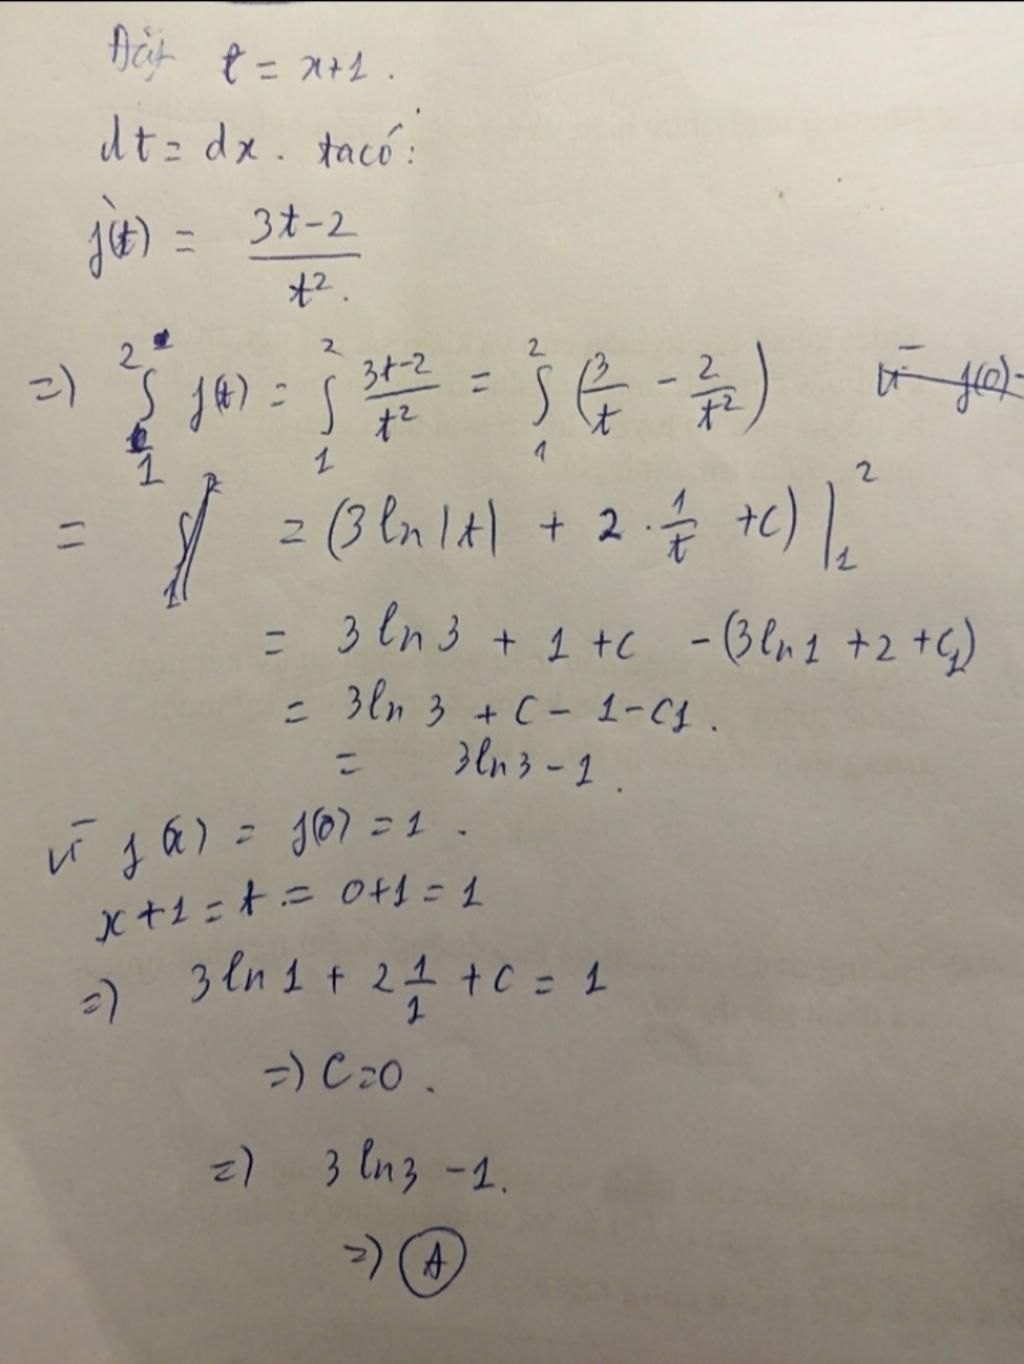 Đặt t = x+1.
dt = dx. ta có:
f(t) = \frac{3t-2}{t^2}.
=) \int_1^2 f(t) = \int_1^2 \frac{3t-2}{t^2} = \int_1^2 (\frac{3}{t} - \frac{2}{t^2}) vì f(0)
= = (3ln|t| + 2 \cdot \frac{1}{t} + c) |_1^2
= 3ln3 + 1 + c - (3ln1 + 2 + c_1)
= 3ln3 + c - 1 - c1.
= 3ln3 - 1.
vì f(x) = f(0) = 1.
x+1 = t = 0+1 = 1
=) 3ln1 + 2\frac{1}{1} + c = 1
=) C=0.
=) 3ln3 - 1.
=) A